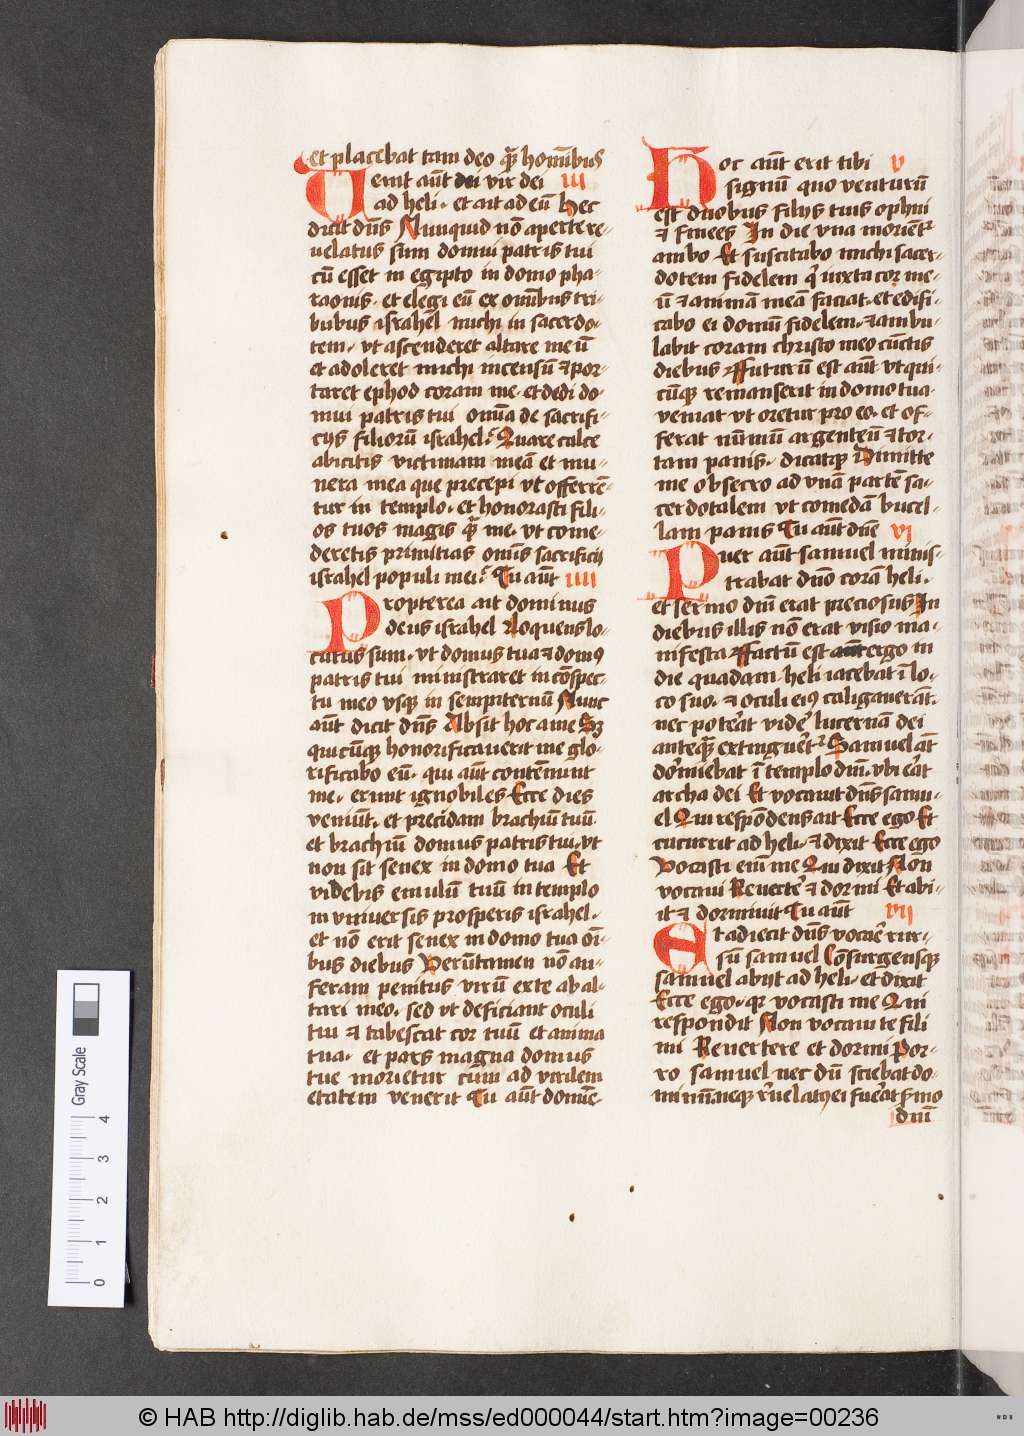 et placebat tam deo qm̄ homībus
Uenit aūt dei vir dei iii
ad heli · et ait ad eū Hec
dicit dn̄s Nunquid nō aperte re⸗
uelatus sum domui patris tui
cū esset in egipto in domo pha⸗
raonis · et elegi eū ex omībus tri⸗
bubus israhel michi in sacerdo⸗
tem · vt ascenderet altare meū
et adoleret michi incensū ⁊ por⸗
taret ephod coram me · et dedi do⸗
mui patris tui omīa de sacrifi⸗
cijs filiorū israhel · Quare calce
abicitis victimam meā et mu⸗
nera mea que precepi vt offerrēt
tur in templo · et honorasti fili⸗
os tuos magis qm̄ me · vt come⸗
deretis primitias omīs sacrificii
israhel populi mei · Tu aūt iiii
Propterea ait dominus
deus israhel Loquens lo⸗
cutus sum · vt domus tua ⁊ domꝰ
patris tui ministraret in cōspec⸗
tu meo vsqꝫ in sempiternū Nunc
aūt dicit dn̄s Absit hoc a me Sꝫ
quicūqꝫ honorificauerit me glo⸗
rificabo eū · qui aūt contēnunt
me · erunt ignobiles Ecce dies
veniūt · et precidam brachiū tuū
et brachiū domus patris tui · vt
non sit senex in domo tua Et
videbis emulū tuū in templo
in vniuersis prosperis israhel ·
et nō erit senex in domo tua oī⸗
bus diebus Verūtamen nō au⸗
feram penitus virū ex te ab al⸗
tari meo · sed vt deficiant oculi
tui ⁊ tabescat cor tuū et anima
tua · et pars magna domus
tue morietur cūm ad virilem
etatem venerit Tu aūt domīe ·
Hoc aūt erit tibi v
signū quo venturū
est duobus filijs tuis ophni
⁊ finees In die vna morient᷑
ambo Et suscitabo michi sacer⸗
dotem fidelem qͥ iuxta cor me⸗
ū ⁊ animā meā faciat · et edifi⸗
cabo ei domū fidelem · ⁊ ambu⸗
labit coram christo meo cūctis
diebus Futurū est aūt vt qui⸗
cūqꝫ remanserit in domo tua ·
veniat vt oretur pro eo · et of⸗
ferat nūmū argenteū ⁊ tor⸗
tam panis · dicatqꝫ Dimitte
me obsecro ad vnā partē sa⸗
cerdotalem vt comedā bucel⸗
lam panis Tu aūt dn̄e vi
Puer aūt samuel minis⸗
trabat dn̄o corā heli ·
et sermo dn̄i erat preciosus In
diebus illis nō erat visio ma⸗
nifesta Factū est ergo in
die quadam · heli iacebat ī lo⸗
co suo · ⁊ oculi eiꝰ caligauerāt ·
nec poterat vidē lucernā dei
anteqm̄ extinguert᷑ Samuel aūt
dormiebat ī templo dn̄i · vbi erat
archa dei Et vocauit dn̄s samu⸗
el Qui respōdens ait Ecce ego Et
cucurrit ad heli · ⁊ dixit Ecce ego
Vocasti enī me Qui dixit Non
vocaui Reuertē ⁊ dormi Et abi⸗
it ⁊ dormiuit Tu aūt vii
Et adiecit dn̄s vocare rur⸗
sū samuel Cōsurgensqꝫ
samuel abijt ad heli · et dixit
Ecce ego · qꝛ vocasti me Qui
respondit Non vocaui te fili
mi Reuertere et dormi Por⸗
ro samuel nec dū sciebat do⸗
minū · neqꝫ reuelatꝰ ei fuerat sermo
dn̄i
Gray Scale
4
3
2
1
0
© HAB http://diglib.hab.de/mss/ed000044/start.htm?image=00236